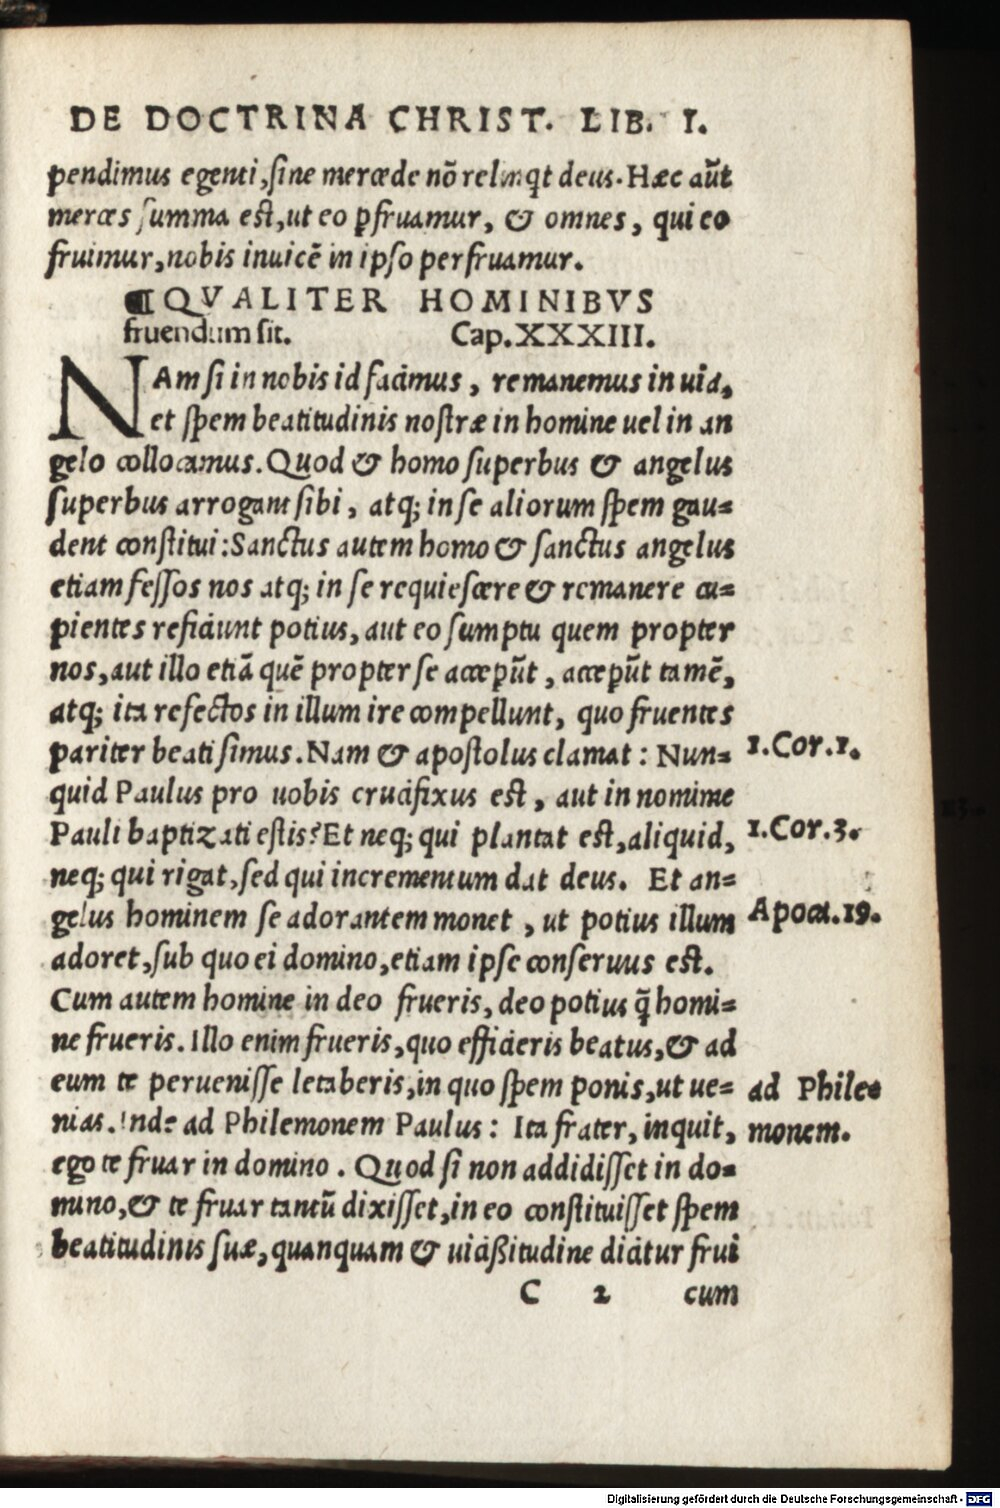 DE DOCTRINA CHRIST. LIB. I.
pendimus egenti, sine mercede nõ relinqt deus. Hæc aũt
merces summa est, ut eo ꝑfruamur, & omnes, qui eo
fruimur, nobis inuicẽ in ipso perfruamur.
¶QVALITER HOMINIBVS
fruendum sit. Cap.XXXIII.
NAm si in nobis id facimus, remanemus in uia,
et spem beatitudinis nostræ in homine uel in an
gelo collocamus. Quod & homo superbus & angelus
superbus arrogant sibi, atq; in se aliorum spem gau=
dent constitui: Sanctus autem homo & sanctus angelus
etiam fessos nos atq; in se requiescere & remanere cu=
pientes reficiunt potius, aut eo sumptu quem propter
nos, aut illo etiã quẽ propter se acceꝑũt, acceꝑũt tamẽ,
atq; ita refectos in illum ire compellunt, quo fruentes
pariter beati simus. Nam & apostolus clamat: Nun= 1.Cor.1.
quid Paulus pro uobis crucifixus est, aut in nomine
Pauli baptizati estis? Et neq; qui plantat est, aliquid, 1.Cor.3.
neq; qui rigat, sed qui incrementum dat deus. Et an=
gelus hominem se adorantem monet, ut potius illum Apoca.19.
adoret, sub quo ei domino, etiam ipse conseruus est.
Cum autem homine in deo frueris, deo potius q̃ homi=
ne frueris. Illo enim frueris, quo efficieris beatus, & ad
eum te peruenisse letaberis, in quo spem ponis, ut ue= ad Phile=
nias. Inde ad Philemonem Paulus: Ita frater, inquit, monem.
ego te fruar in domino. Quod si non addidisset in do=
mino, & te fruar tantũ dixisset, in eo constituisset spem
beatitudinis suæ, quanquam & uicißitudine dicitur frui
C 2 cum
Digitalisierung gefördert durch die Deutsche Forschungsgemeinschaft - DFG